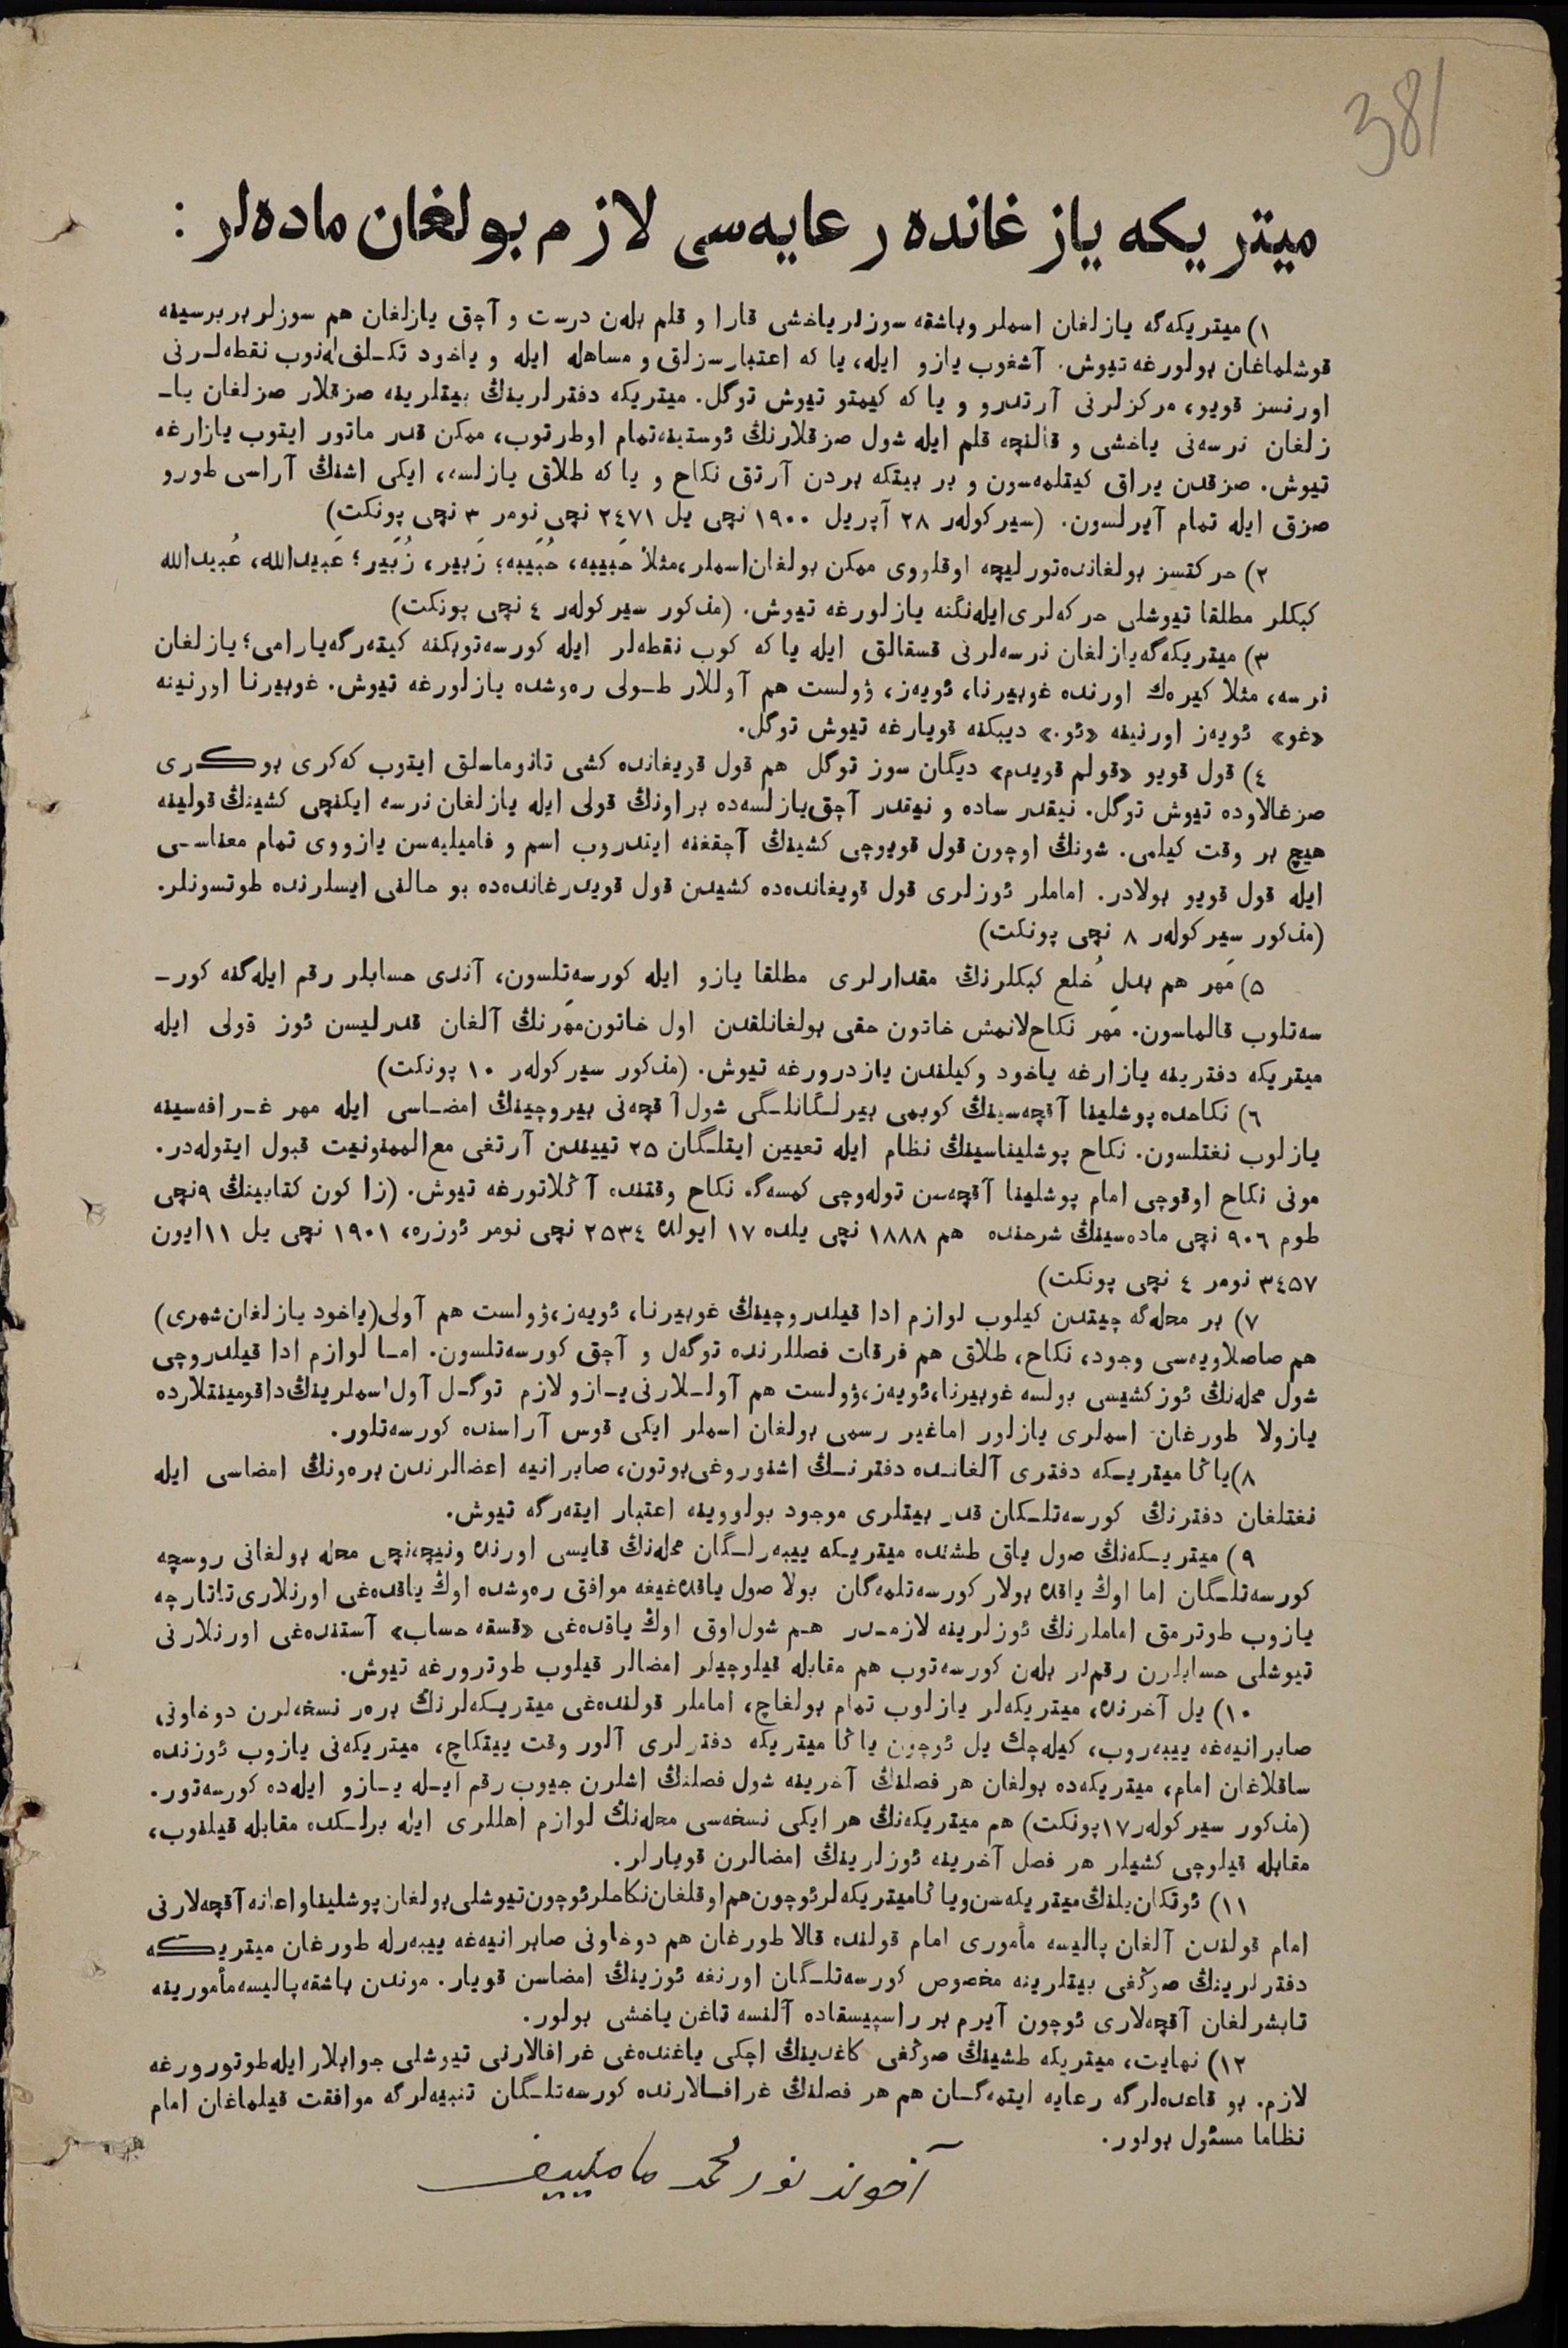 381
ميتريكه يازغانده رعايه‌سى لازم بولغان ماده‌لر :
١) ميتريكه‌گه يازلغان اسملر وباشقه سوزلر ياخشى قارا و قلم بله‌ن درست و آچق يازلغان هم سوزلر بربرسينه
قوشلماغان بولورغه تيوش. آشغوب يازو ايله، يا كه اعتبارسزلق و مساهله ايله و ياخود تكـلف‌له‌نوب نقطه‌لـرنى
اورنسز قويو، مركزلرنى آرتدرو و يا كه كيمتو تيوش توگل. ميتريكه دفترلرينڭ بيتلرينه صزقلار صزلغان ياـ
زلغان نرسه‌نى ياخشى و قالنچه قلم ايله شول صزقلارنڭ ئوستينه‌تمام اوطرتوب، ممكن قدر ماتور ايتوب يازارغه
تيوش. صزقدن يراق كيتلمه‌سون و بر بيتكه بردن آرتق نكاح و يا كه طلاق يازلسه، ايكى اشنڭ آراسى طورو
صزق ايله تمام آيرلسون. (سيركولەر ٢٨ آپريل ١٩٠٠ نچى يل ٢٤٧١ نچى نومر ٣ نچى پونكت)
٢) حركتسز بولغانده‌تورليچه اوقلووى ممكن بولغان‌اسملر،مثلا حَبيبه، حُبَيبه؛ زَبير، زُبَير؛ عَبيدالله، عُبيدالله
كبكلر مطلقا تيوشلى حركه‌لرى‌ايله‌نگنه يازلورغه تيوش. (مذكور سيركولەر ٤ نچى پونكت)
٣) ميتريكه‌گه‌يازلغان نرسه‌لرنى قسقالق ايله يا كه كوب نقطه‌لر ايله كورسه‌توبكنه كيته‌رگه‌يارامى؛ يازلغان
نرسه، مثلا كيره‌ك اورنده غوبيرنا، ئويه‌ز، ۋولست هم آوللار طـولى ره‌وشده يازلورغه تيوش. غوبيرنا اورنينه
«غو» ئويه‌ز اورنينه «ئو.» ديبكنه قويارغه تيوش توگل.
٤) قول قويو «قولم قويدم» ديگان سوز توگل هم قول قويغانده كشى تانوماسلق ايتوب كه‌كرى بوكرى
صزغالاوده تيوش توگل. نيقدر ساده و نيقدر آچق‌يازلسه‌ده براونڭ قولى ايله يازلغان نرسه ايكنچى كشينڭ قولينه
هيچ بر وقت كيلمى. شونڭ اوچون قول قويوچى كشينڭ آچقغنه ايتدروب اسم و فاميليه‌سن يازووى تمام معناسـى
ايله قول قويو بولادر. اماملر ئوزلرى قول قويغانده‌ده كشيدن قول قويدرغانده‌ده بو حالنى ايسلرنده طوتسونلر.
(مذكور سيركولەر ٨ نچى پونكت)
۵) مَهر هم بدلِ خُلع كبكلرنڭ مقدارلرى مطلقا يازو ايله كورسه‌تلسون، آندى حسابلر رقم ايله‌گنه كورـ
سه‌تلوب قالماسون. مَهر نكاح‌لانمش خاتون حقى بولغانلقدن اول خاتون‌مهَرنڭ آلغان قدرليسن ئوز قولى ايله
ميتريكه دفترينه يازارغه ياخود وكيلندن يازدرورغه تيوش. (مذكور سيركولەر ١٠ پونكت)
٦) نكاحده پوشلينا آقچه‌سينڭ كوبمى بيرلـگانلـگى شول آقچه‌نى بيروچينڭ امضـاسى ايله مهر غـرافه‌سينه
يازلوب نغتلسون. نكاح پوشليناسينڭ نظام ايله تعيين ايتلـگان ٢۵ تييندن آرتغى مع‌الممنونيت قبول ايتوله‌در.
مونى نكاح اوقوچى امام پوشلينا آقچه‌سن توله‌وچى كمسه‌گه نكاح وقتنده آڭلاتورغه تيوش. (زاكون كتابينڭ ٩نچى
طوم ٩٠٦ نچى ماده‌سينڭ شرحنده هم ١٨٨٨ نچى يلده ١٧ ايولده ٢۵٣٤ نچى نومر ئوزره، ١٩٠١ نچى يل ١١ايون
٣٤۵٧ نومر ٤ نچى پونكت)
٧) بر محله‌گه چيتدن كيلوب لوازم ادا قيلدروچينڭ غوبيرنا، ئويه‌ز،ۋولست هم آولى(ياخود يازلغان‌شهرى)
هم صاصلاويه‌سى وجود، نكاح، طلاق هم فرقات فصللرنده توگه‌ل و آچق كورسه‌تلسون. امـا لوازم ادا قيلدروچى
شول محله‌نڭ ئوز كشيسى بولسه غوبيرنا،ئويه‌ز،ۋولست هم آولـلارنى يـازو لازم توگـل آول اسملرينڭ‌داقومينتلارده
يازولا طورغان اسملرى يازلور اماغير رسمى بولغان اسملر ايكى قوس آراسنده كورسه‌تلور.
٨)ياڭا ميتريـكه دفترى آلغانـده دفترنـڭ اشنوروغى‌بوتون، صابرانيه اعضالرندن بره‌ونڭ امضاسى ايله
نغتلغان دفترنڭ كورسه‌تلـكان قدر بيتلرى موجود بولووينه اعتبار ايته‌رگه تيوش.
٩) ميتريـكه‌نڭ صول ياق طشنده ميتريـكه ييبه‌رلـگان محله‌نڭ قايسى اورنده ونيچه‌نچى محله بولغانى روسچه
كورسه‌تلـگان اما اوڭ ياقده بولار كورسه‌تلمه‌گان بولا صول ياقده‌غيغه موافق ره‌وشده اوڭ ياقده‌غى اورنلارى‌تاتارچه
يازوب طوترمق اماملرنڭ ئوزلرينه لازمـدر هـم شول‌اوق اوڭ ياقده‌غى «قسقه حساب» آستنده‌غى اورنلارنى
تيوشلى حسابلرن رقم‌لر بله‌ن كورسه‌توب هم مقابله قيلوچيلر امضالر قيلوب طوترورغه تيوش.
١٠) يل آخرنده، ميتريكه‌لر يازلوب تمام بولغاچ، اماملر قولنده‌غى ميتريـكه‌لرنڭ بره‌ر نسخه‌لرن دوخاونى
صابرانيه‌غه ييبه‌روب، كيله‌چك يل ئوچون ياڭا ميتريكه دفترلرى آلور وقت ييتكاچ، ميتريكه‌نى يازوب ئوزنده
ساقلاغان امام، ميتريكه‌ده بولغان هر فصلنڭ آخرينه شول فصلنڭ اشلرن جيوب رقم ايـله يـازو ايله‌ده كورسه‌تور.
(مذكور سيركولەر١٧پونكت) هم ميتريكه‌نڭ هر ايكى نسخه‌سى محله‌نڭ لوازم اهللرى ايله برلـكده مقابله قيلنوب،
مقابله قيلوچى كشيلر هر فصل آخرينه ئوزلرينڭ امضالرن قويارلر.
١١) ئوتكان‌يلنڭ‌ميتريكه‌سن‌وياڭاميتريكه‌لرئوچون‌هم‌اوقلغان‌نكاحلرئوچون‌تيوشلى‌بولغان‌پوشليناواعانه‌آقچه‌لارنى
امام قولندن آلغان پاليسه مأمورى امام قولنده قالا طورغان هم دوخاونى صابرانيه‌غه ييبه‌رله طورغان ميتريكه
دفترلرينڭ صوڭغى بيتلرينه مخصوص كورسه‌تلـگان اورنغه ئوزينڭ امضاسن قويار. موندن باشقه‌پاليسه‌مأمورينه
تابشرلغان آقچه‌لارى ئوچون آيرم بر راسپيسقاده آلنسه تاغن ياخشى بولور.
١٢) نهايت، ميتريكه طشينڭ صوڭغى كاغدينڭ اچكى ياغنده‌غى غرافالارنى تيوشلى جوابلار ايله‌طوتورورغه
لازم. بو قاعده‌لرگه رعايه ايتمه‌گـان هم هر فصلنڭ غرافـالارنده كورسه‌تلـگان تنبيه‌لرگه موافقت قيلماغان امام
نظاما مسئول بولور.
آخوند نورمحمد مامليـيف